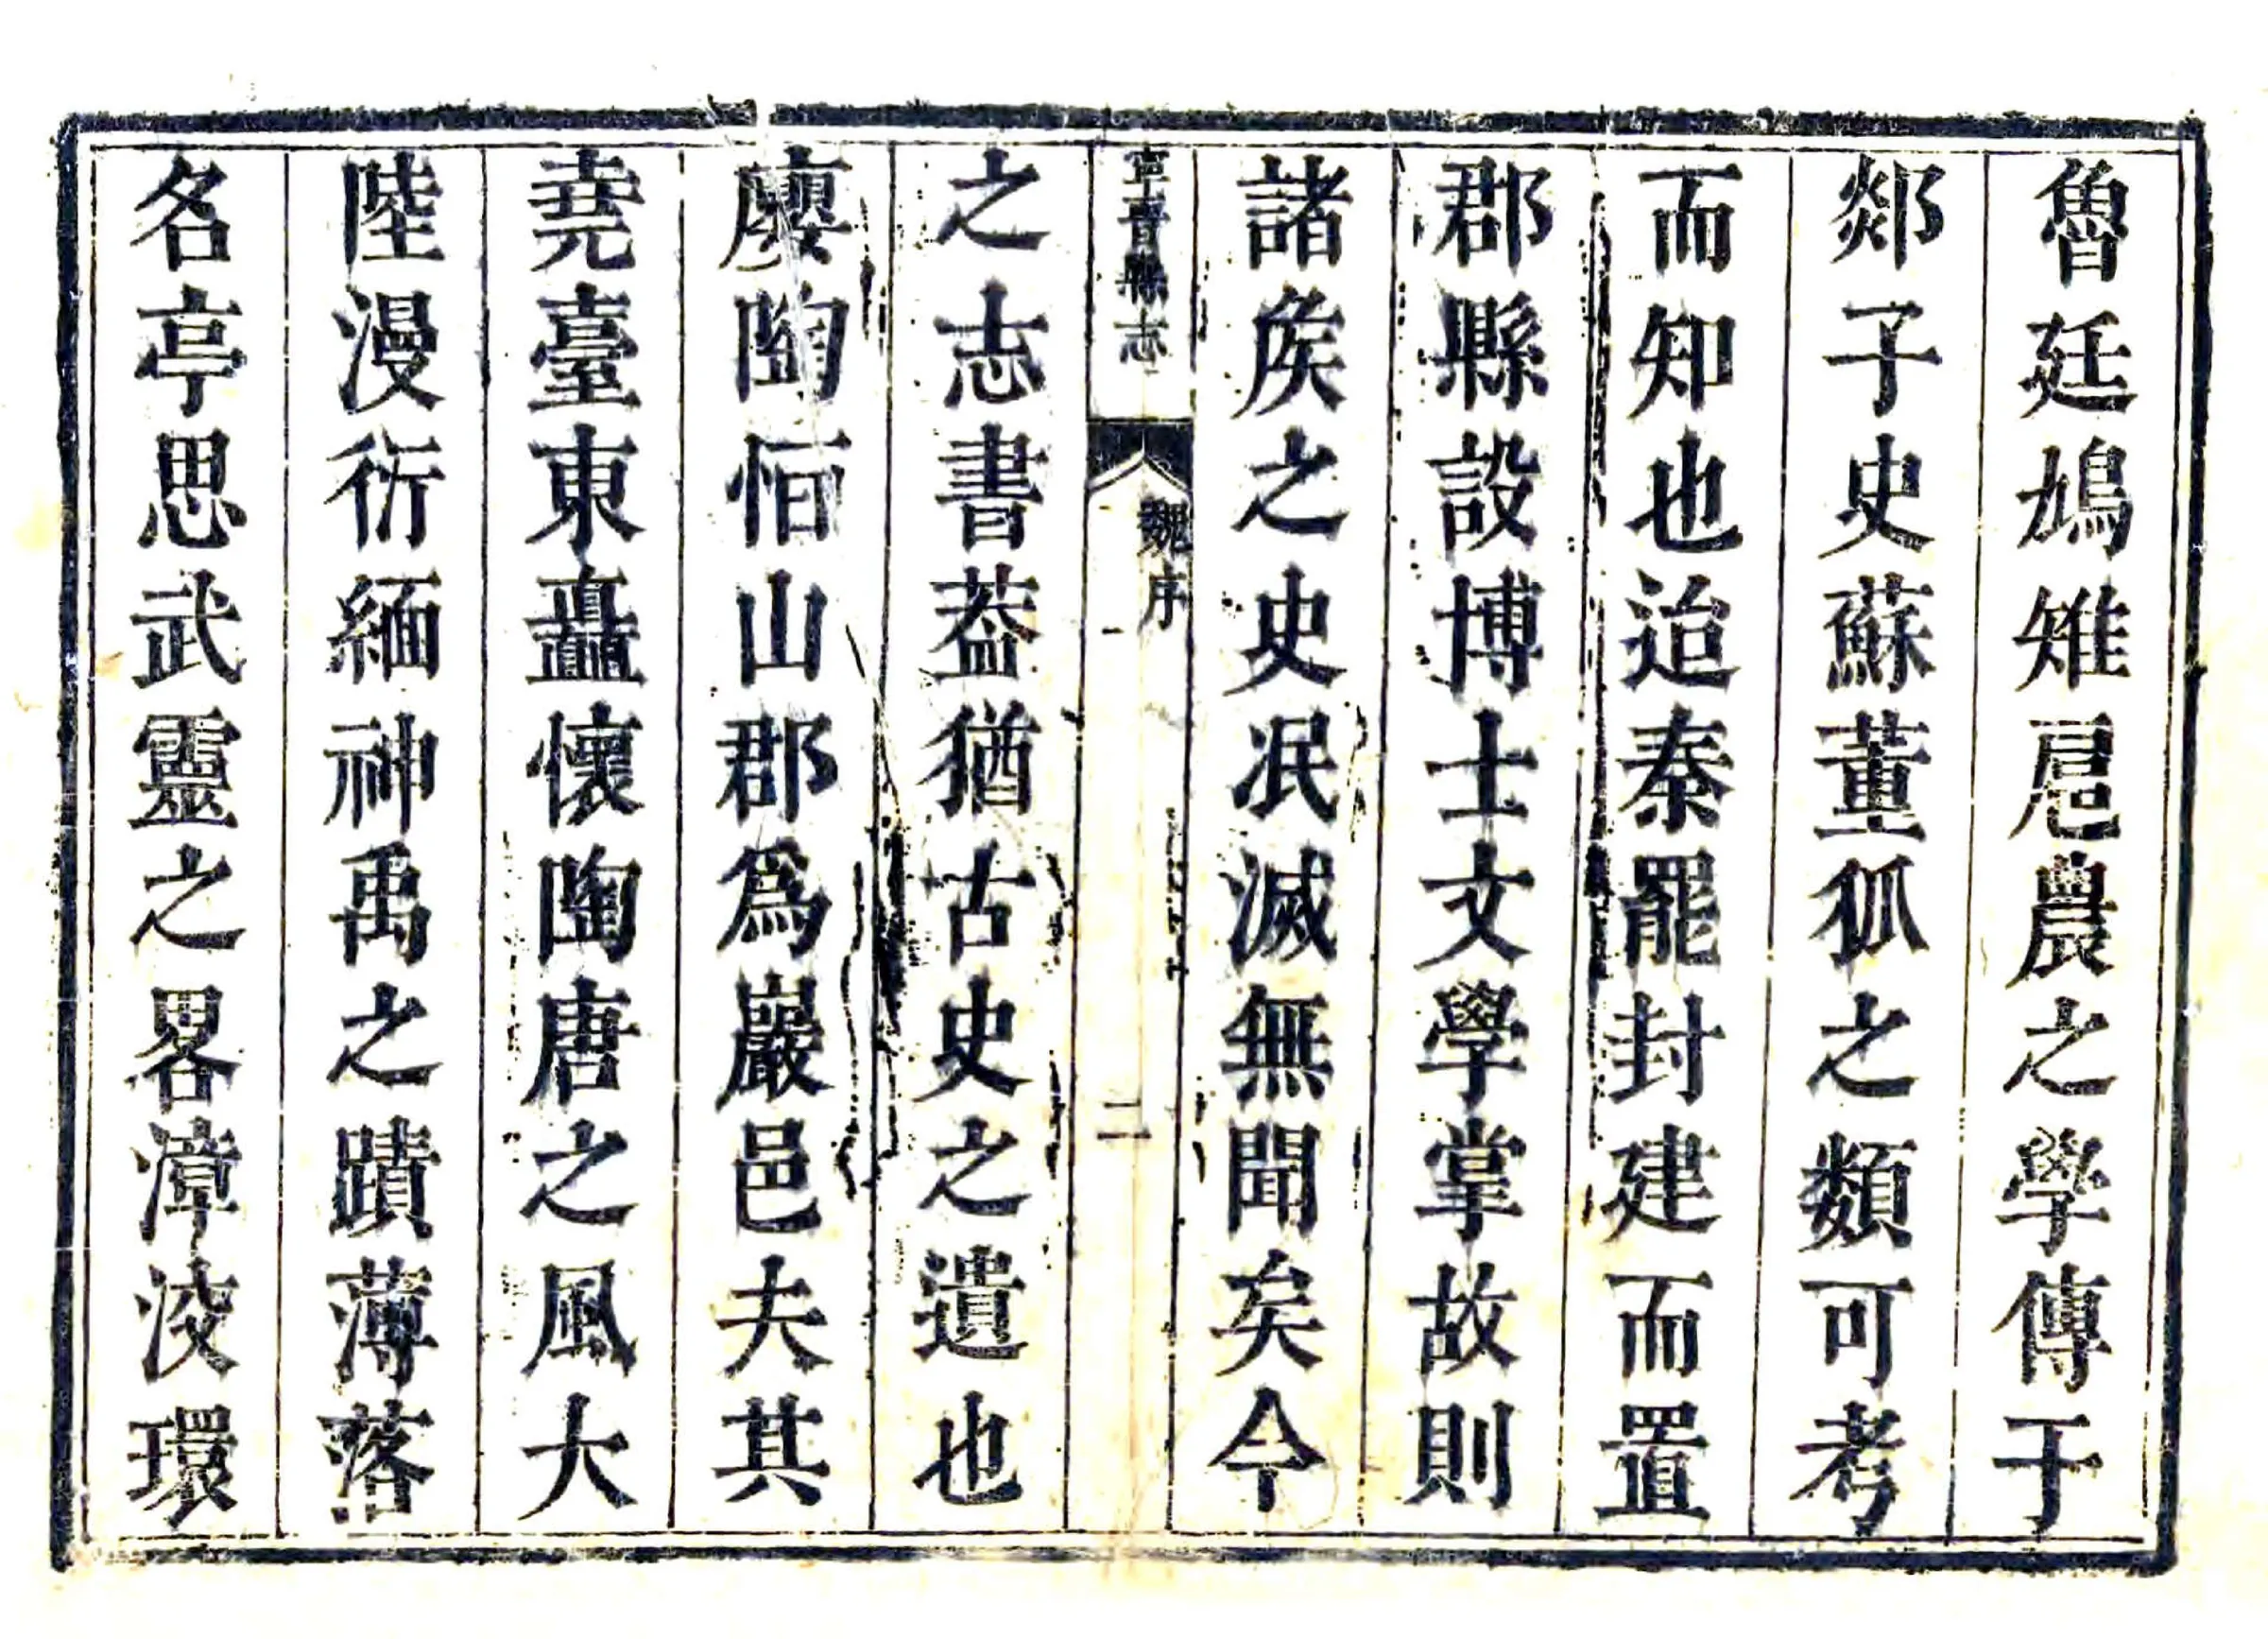 魯廷鳩雉扈農之學傳于
郯子史蘇董狐之類可考
而知也迨秦罷封建而置
郡縣設博士文學掌故則
諸矦之史泯滅無聞矣今
寧晉縣志
魏序
二
之志書葢猶古史之遺也
廮陶恒山郡爲巖邑夫其
堯臺東矗懷陶唐之風大
陸漫衍緬神禹之蹟薄落
名亭思武靈之畧漳洨環